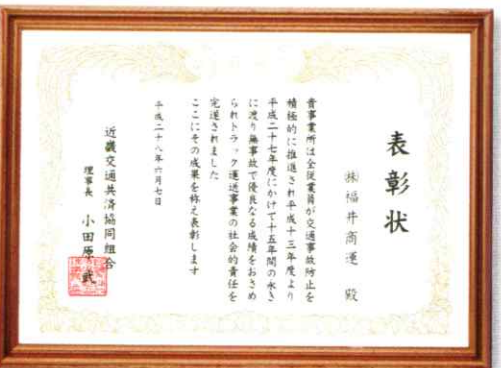 表彰状
㈱福井商運 殿
貴事業所は全従業員が交通事故防止を
積極的に推進され平成十三年度より
平成二十七年度にかけて十五年間の永き
に渡り無事故で優良なる成績をおさめ
られトラック運送事業の社会的責任を
完遂されました
ここにその成果を称え表彰します
平成二十八年六月七日
近畿交通共済協同組合
理事長 小田原 武